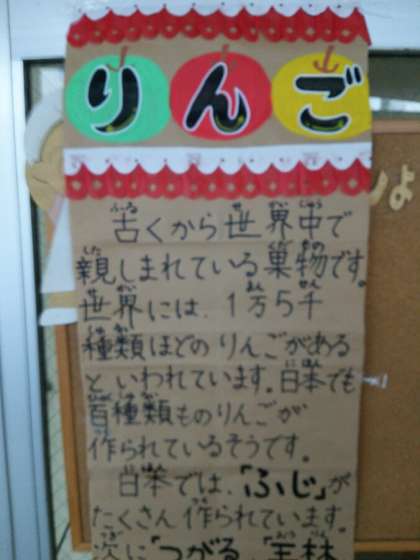 りんご
古くから世界中で
親しまれている果物です。
世界には、1万5千
種類ほどのりんごがある
といわれています。日本でも
百種類ものりんごが
作られているそうです。
日本では、「ふじ」が
たくさん作られています。
次に「つがる」、「王林